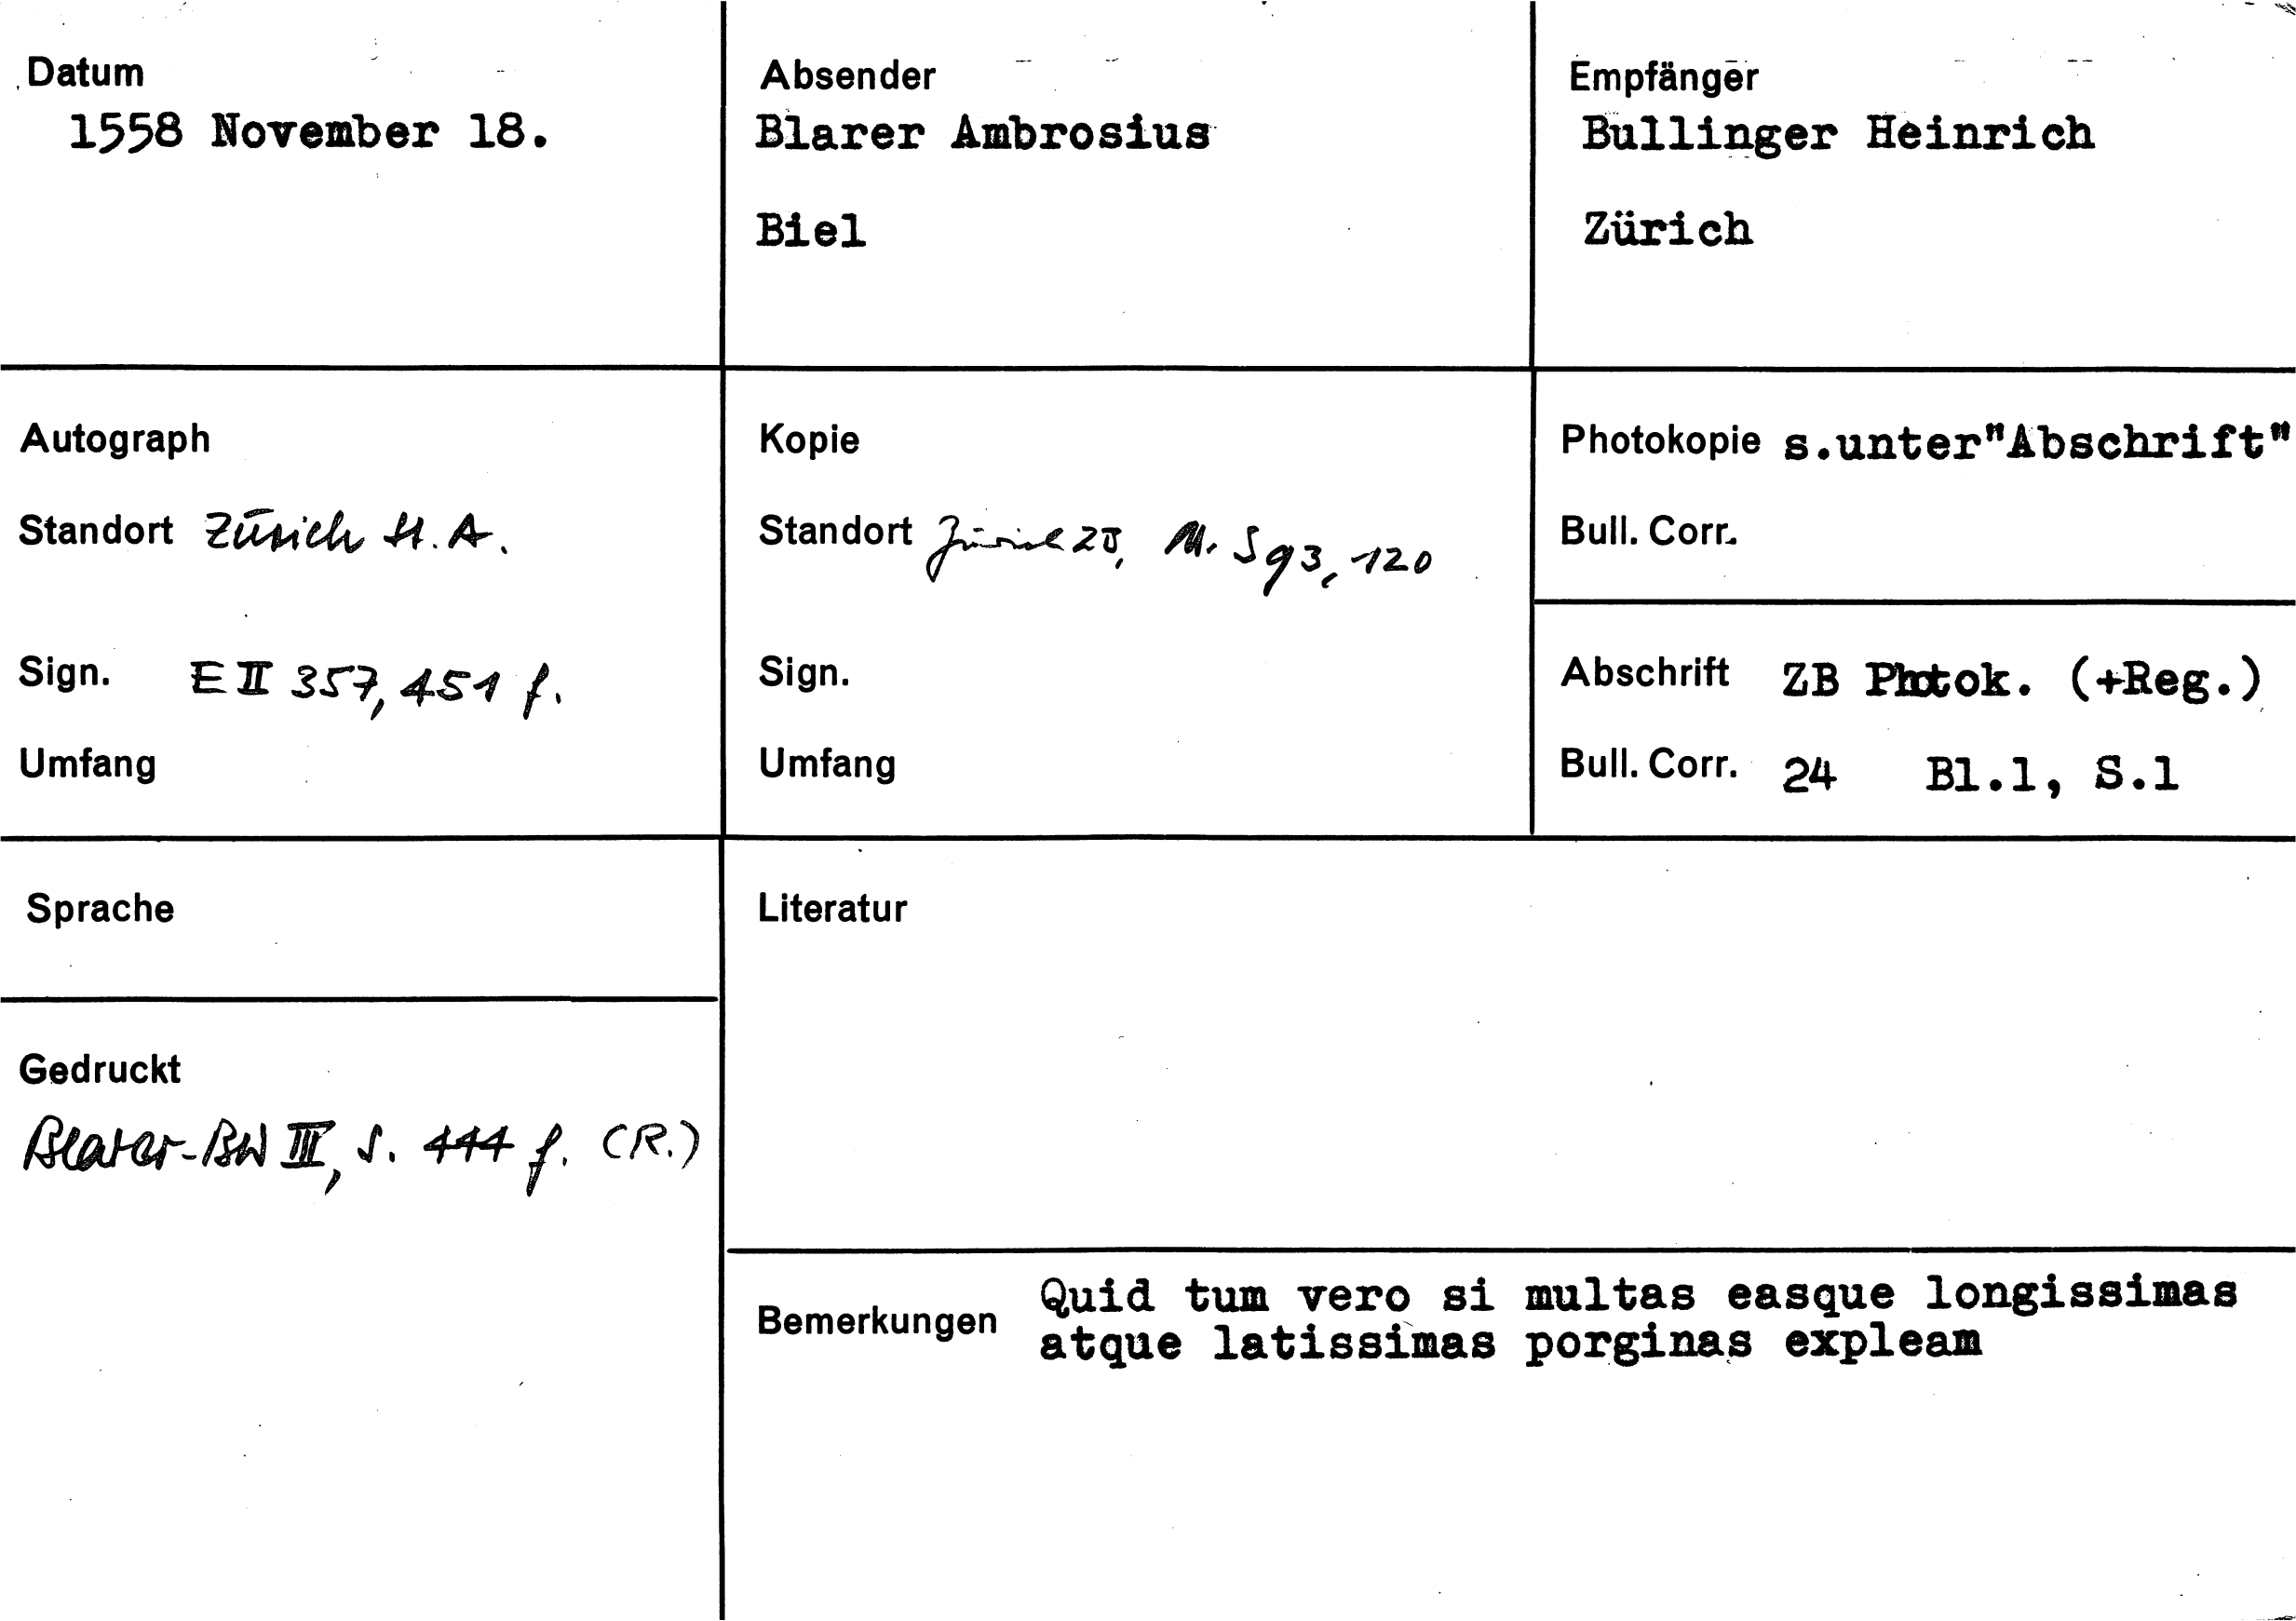 Datum
1558 November 18.
Absender
Blarer Ambrosius
Biel
Empfänger
Bullinger Heinrich
Zürich
Autograph
Standort Zürich St.A.
Sign. E II 357, 451 f.
Umfang
Kopie
Standort Zürich ZB, M. S 93, 120
Sign.
Umfang
Photokopie s.unter"Abschrift"
Bull. Corr.
Abschrift ZB Photok. (+Reg.)
Bull. Corr. 24 Bl.1, S.1
Sprache
Gedruckt
Blarer-BW III, S. 444 f. (R.)
Literatur
Bemerkungen Quid tum vero si multas easque longissimas
atque latissimas porginas expleam